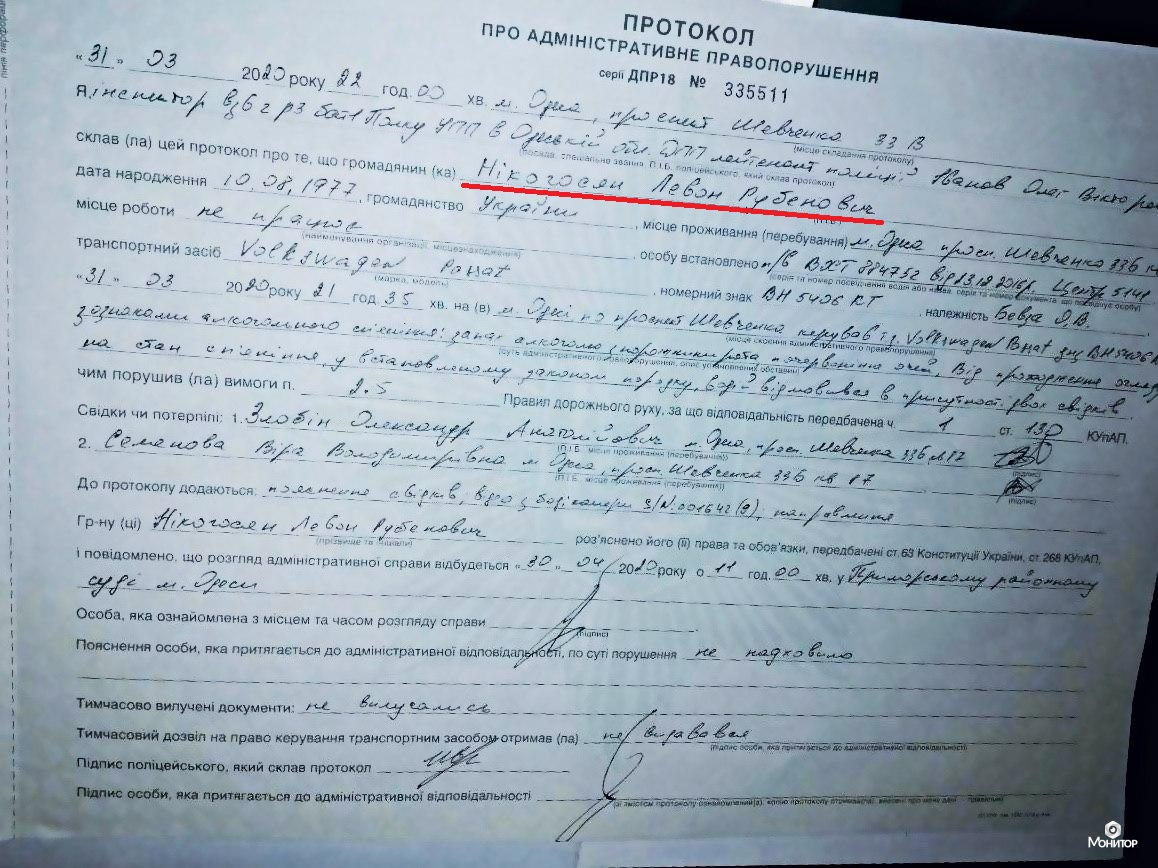 ПРОТОКОЛ
ПРО АДМІНІСТРАТИВНЕ ПРАВОПОРУШЕННЯ
серії ДПР18 № 335511
"31" 03 2020 року 22 год. 00 хв. м. Одеса, проспект Шевченка 33 В
(місце складання протоколу)
Я, інспектор в 6 р 3 бат 1 Полку УПП в Одеській обл. ДПП лейтенант поліції Іванов Олег
(посада, спеціальне звання, П.І.Б. поліцейського, який склав протокол)
склав (ла) цей протокол про те, що громадянин (ка) Нікогосян Левон Рубенович
(П.І.Б.)
дата народження 10.08.1977, громадянство України, місце проживання (перебування) м. Одеса просп. Шевченка 33б
місце роботи не працює, особу встановлено п/в ВХТ 884752 від 13.12.2016р. Центр 5141
(найменування організації, місцезнаходження) (серія та номер посвідчення водія або назва, серія та номер документа, що посвідчує особу)
транспортний засіб Volkswagen Passat, номерний знак ВН 5406 КТ, належність Бевза О.В.
(марка, модель)
"31" 03 2020 року 21 год. 35 хв. на (в) м. Одесі по проспект Шевченка керував т.з. Volkswagen Passat днз ВН 5406 К
(місце скоєння адміністративного правопорушення)
з ознаками алкогольного сп'яніння: запах алкоголю з порожнини рота, почервоніння очей. Від проходження огляду
(суть адміністративного правопорушення, опис установлених обставин)
на стан сп'яніння, у встановленому законом порядку, водій відмовився в присутності двох свідків.
чим порушив (ла) вимоги п. 2.5 Правил дорожнього руху, за що відповідальність передбачена ч. 1 ст. 130 КУпАП.
Свідки чи потерпілі: 1. Злобін Олександр Анатолійович м. Одеса, просп. Шевченка 33б
(П.І.Б. місце проживання (перебування)) (підпис)
2. Семенова Віра Володимирівна м Одеса, просп. Шевченка 33б кв 87
(П.І.Б., місце проживання (перебування)) (підпис)
До протоколу додаються: пояснення свідків, відео з бодікамери S/N.001642 направлення
Гр-ну (ці) Нікогосян Левон Рубенович роз'яснено його (її) права та обов'язки, передбачені ст. 63 Конституції України, ст. 268 КУпАП,
(прізвище та ініціали)
і повідомлено, що розгляд адміністративної справи відбудеться "30" 04 2020 року о 11 год. 00 хв. у Приморському районному
суді м. Одеси
Особа, яка ознайомлена з місцем та часом розгляду справи
(підпис)
Пояснення особи, яка притягається до адміністративної відповідальності, по суті порушення не надходило
Тимчасово вилучені документи: не вилучались
Тимчасовий дозвіл на право керування транспортним засобом отримав (ла) не видавався
(підпис особи, яка притягається до адміністративної відповідальності)
Підпис поліцейського, який склав протокол
Підпис особи, яка притягається до адміністративної відповідальності
Монитор